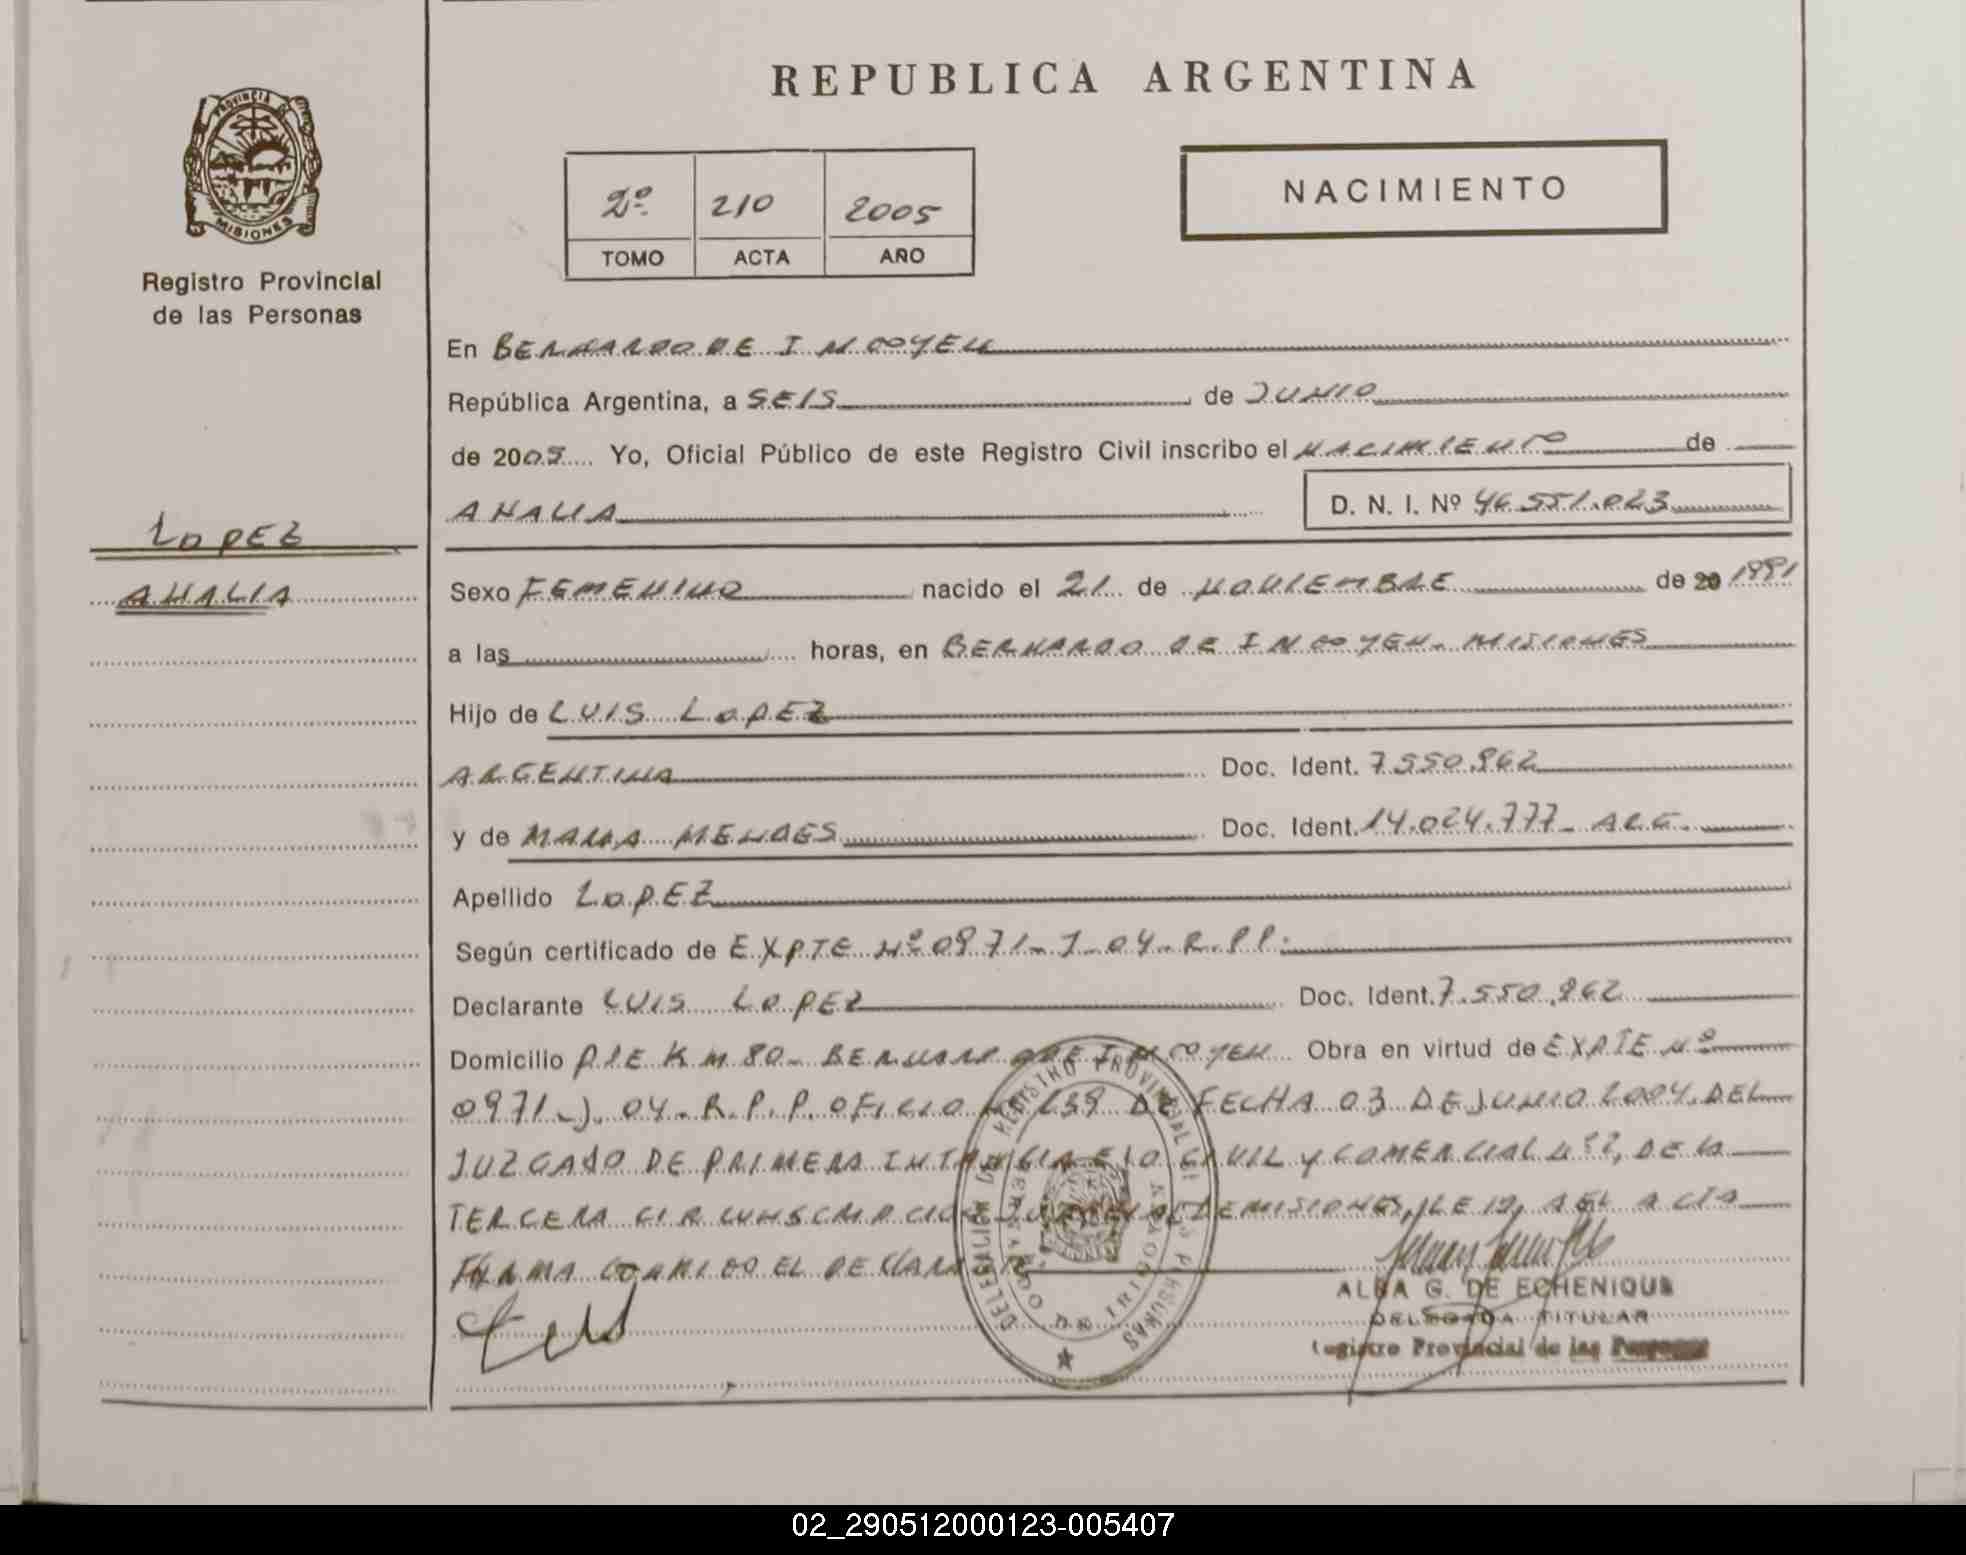 REPUBLICA ARGENTINA
PROVINCIA DE
MISIONES
Registro Provincial
de las Personas
2º 210 2005
TOMO ACTA AÑO
NACIMIENTO
En BERNARDO DE IRIGOYEN
República Argentina, a SEIS de JUNIO
de 2005 Yo, Oficial Público de este Registro Civil inscribo el NACIMIENTO de
ANALIA D. N. I. Nº 46.551.023
LOPEZ
ANALIA
Sexo FEMENINO nacido el 21 de NOVIEMBRE de 20 1991
a las horas, en BERNARDO DE IRIGOYEN - MISIONES
Hijo de LUIS LOPEZ
ARGENTINA Doc. Ident. 7.550.862
y de MARIA MENDES Doc. Ident. 14.024.777 - ARG.
Apellido LOPEZ
Según certificado de EXPTE Nº 0971-J-04-R.P.P.
Declarante LUIS LOPEZ Doc. Ident. 7.550.862
Domicilio PJE KM 80 - BERNARDO DE IRIGOYEN Obra en virtud de EXPTE Nº
0971-J-04-R.P.P. OFICIO Nº 239 DE FECHA 03 DE JUNIO 2004, DEL
JUZGADO DE PRIMERA INTANCIA EN LO CIVIL Y COMERCIAL Nº 2, DE LA
TERCERA CIRCUNSCRIPCION JUDICIAL DE MISIONES, LEIDA EL ACTA
FIRMA CONMIGO EL DECLARANTE.
DELEGACIÓN DE REGISTRO PROVINCIAL DE LAS PERSONAS
BERNARDO DE IRIGOYEN
ALBA G. DE ECHENIQUE
DELEGADA TITULAR
Registro Provincial de las Personas
02_290512000123-005407